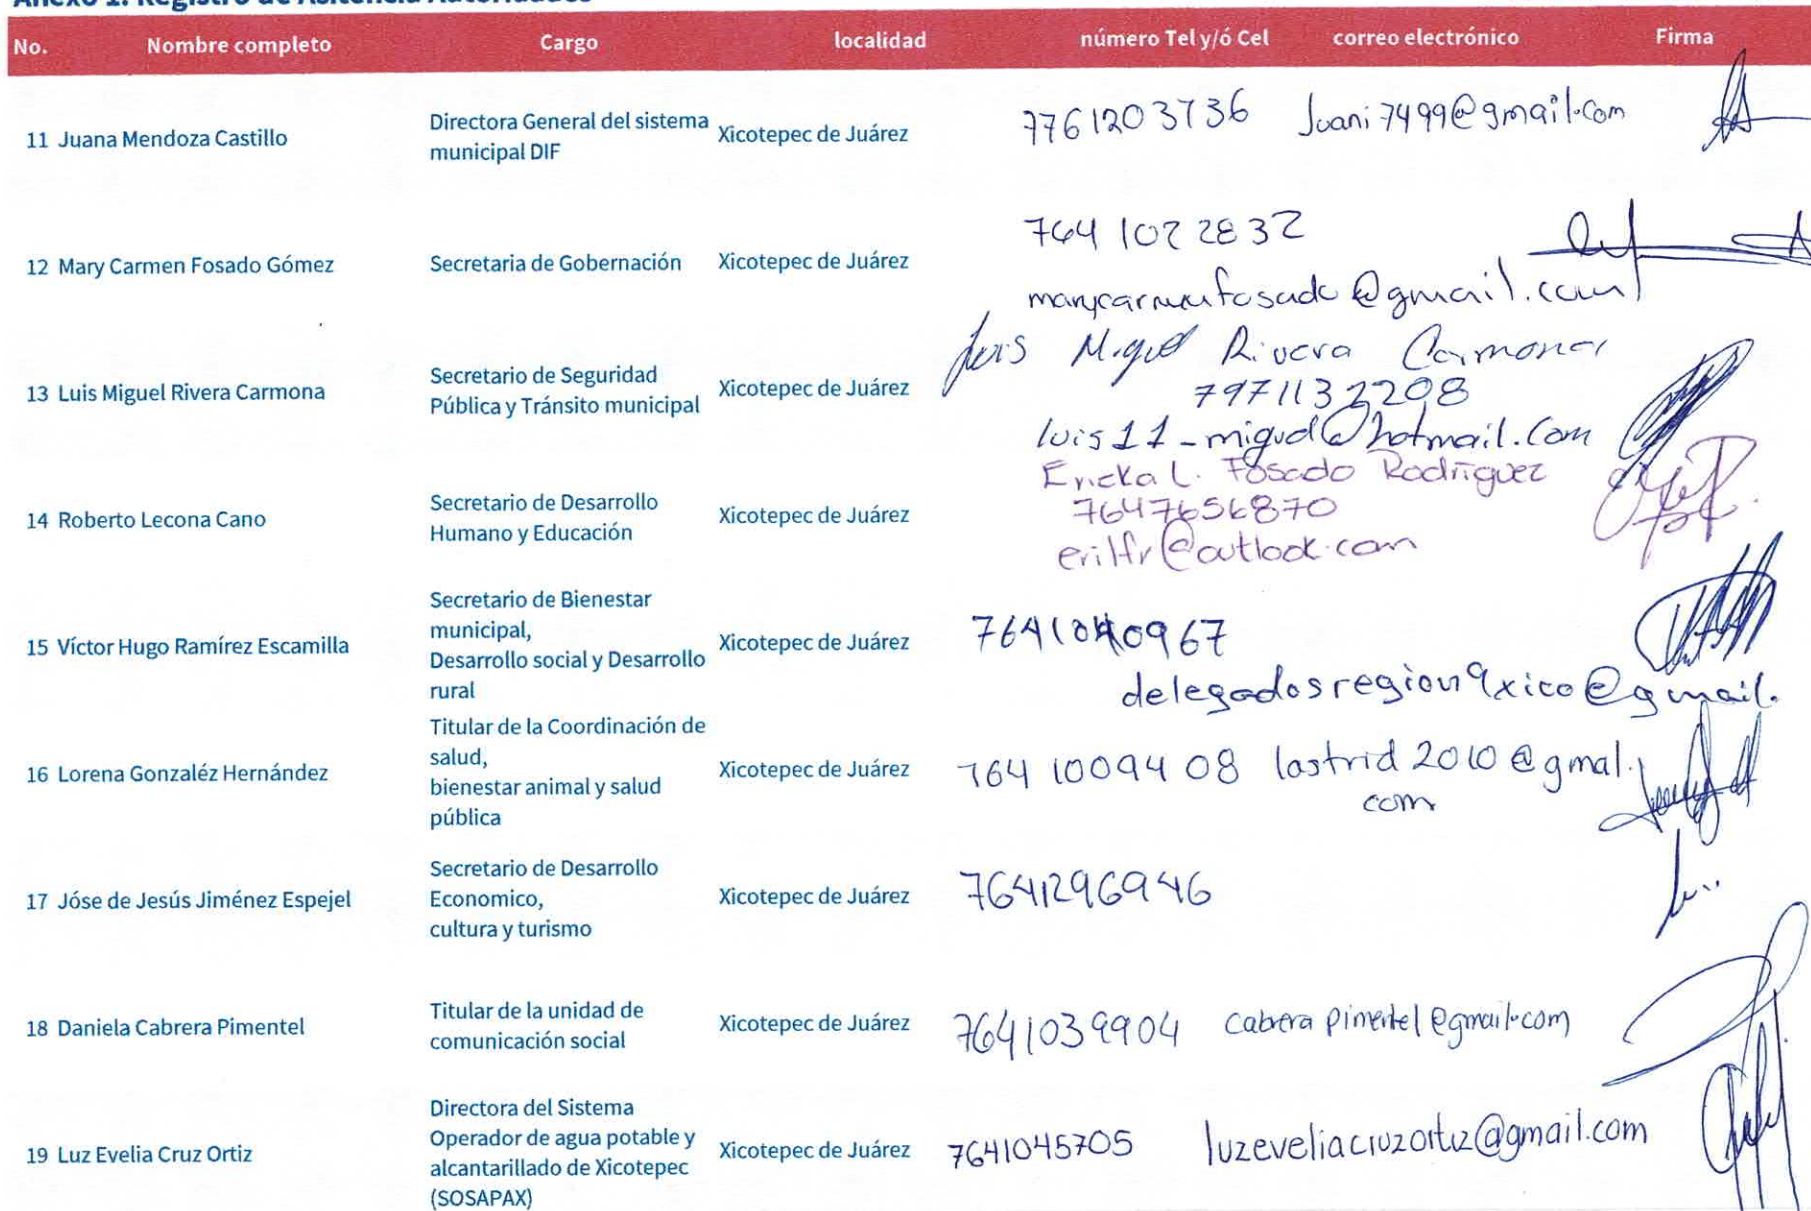 Anexo 1. Registro de Asitencia Autoridades
No. Nombre completo Cargo localidad número Tel y/ó Cel correo electrónico Firma
11 Juana Mendoza Castillo Directora General del sistema municipal DIF Xicotepec de Juárez 7761203736 Juani7499@gmail.com
12 Mary Carmen Fosado Gómez Secretaria de Gobernación Xicotepec de Juárez 764 102 2832
marycarmenfosado@gmail.com
Luis Miguel Rivera Carmona
13 Luis Miguel Rivera Carmona Secretario de Seguridad Pública y Tránsito municipal Xicotepec de Juárez 7971132208
luis11_miguel@hotmail.com
Ericka L. Fosado Rodríguez
14 Roberto Lecona Cano Secretario de Desarrollo Humano y Educación Xicotepec de Juárez 7647656870
erilfr@outlook.com
15 Víctor Hugo Ramírez Escamilla Secretario de Bienestar municipal, Desarrollo social y Desarrollo rural Xicotepec de Juárez
delegadosregion9xico@gmail.
16 Lorena Gonzaléz Hernández Titular de la Coordinación de salud, bienestar animal y salud pública Xicotepec de Juárez 764 1009408 lastrid2010@gmal.
com
17 Jóse de Jesús Jiménez Espejel Secretario de Desarrollo Economico, cultura y turismo Xicotepec de Juárez 7641296946
18 Daniela Cabrera Pimentel Titular de la unidad de comunicación social Xicotepec de Juárez 7641039904 cabrera pimentel@gmail.com
19 Luz Evelia Cruz Ortiz Directora del Sistema Operador de agua potable y alcantarillado de Xicotepec (SOSAPAX) Xicotepec de Juárez 7641045705 luzeveliacruzortiz@gmail.com